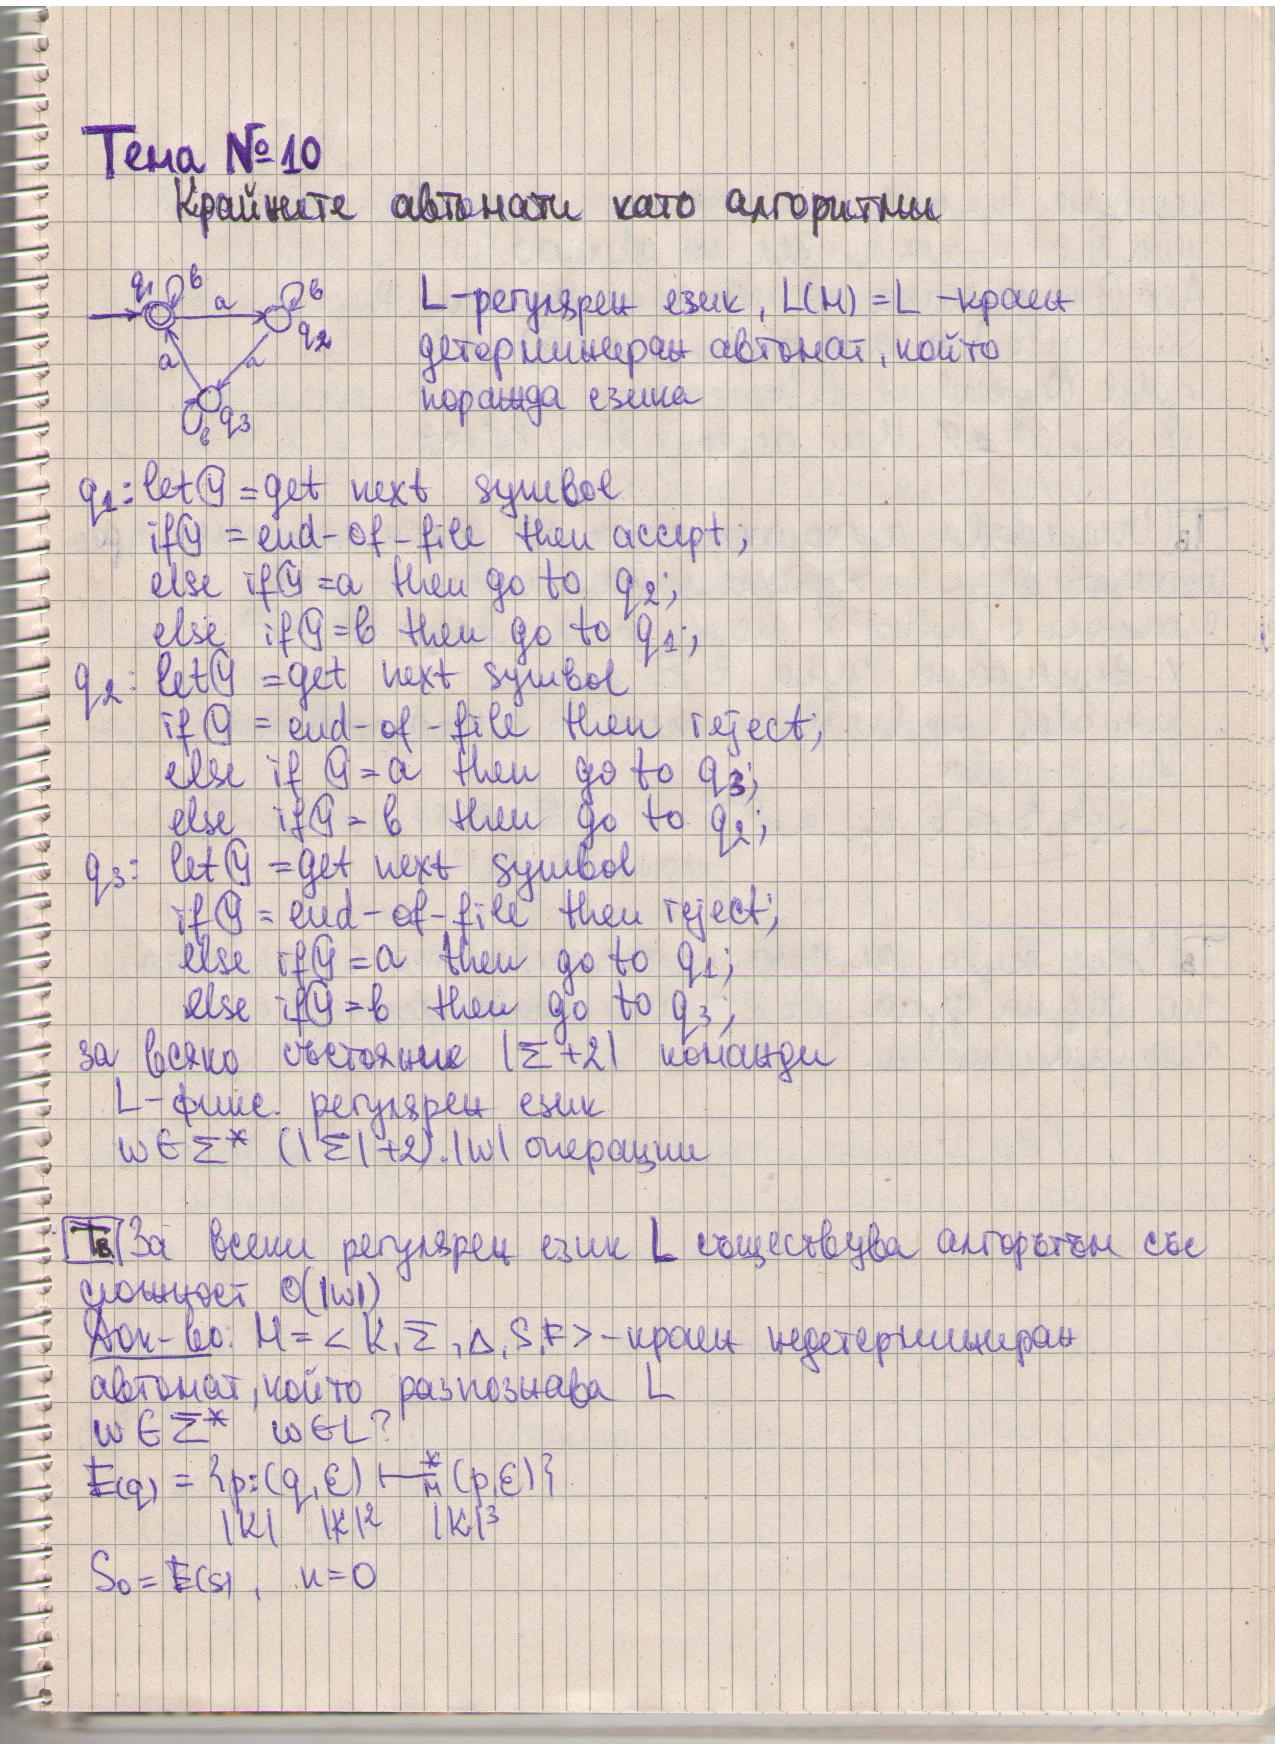 Тема №10
Крайните автомати като алгоритми
q1 b a b q2 a a q3 b
L - регулярен език, L(M) = L - краен
детерминиран автомат, който
поражда езика
q1: let Ⓨ = get next symbol
if Ⓨ = end-of-file then accept;
else if Ⓨ = a then go to q2;
else if Ⓨ = b then go to q1;
q2: let Ⓨ = get next symbol
if Ⓨ = end-of-file then reject;
else if Ⓨ = a then go to q3;
else if Ⓨ = b then go to q2;
q3: let Ⓨ = get next symbol
if Ⓨ = end-of-file then reject;
else if Ⓨ = a then go to q1;
else if Ⓨ = b then go to q3;
за всяко състояние |Σ+2| команди
L - фикс. регулярен език
w ∈ Σ* (|Σ|+2).|w| операции
Тв За всеки регулярен език L съществува алгоритъм със
сложност O(|w|)
Док-во: M = < K, Σ, Δ, S, F > - краен недетерминиран
автомат, който разпознава L
w ∈ Σ* w ∈ L?
E(q) = {p: (q, ε) ⊢*M (p, ε)}
|K| |K|² |K|³
S0 = E(s), n = 0